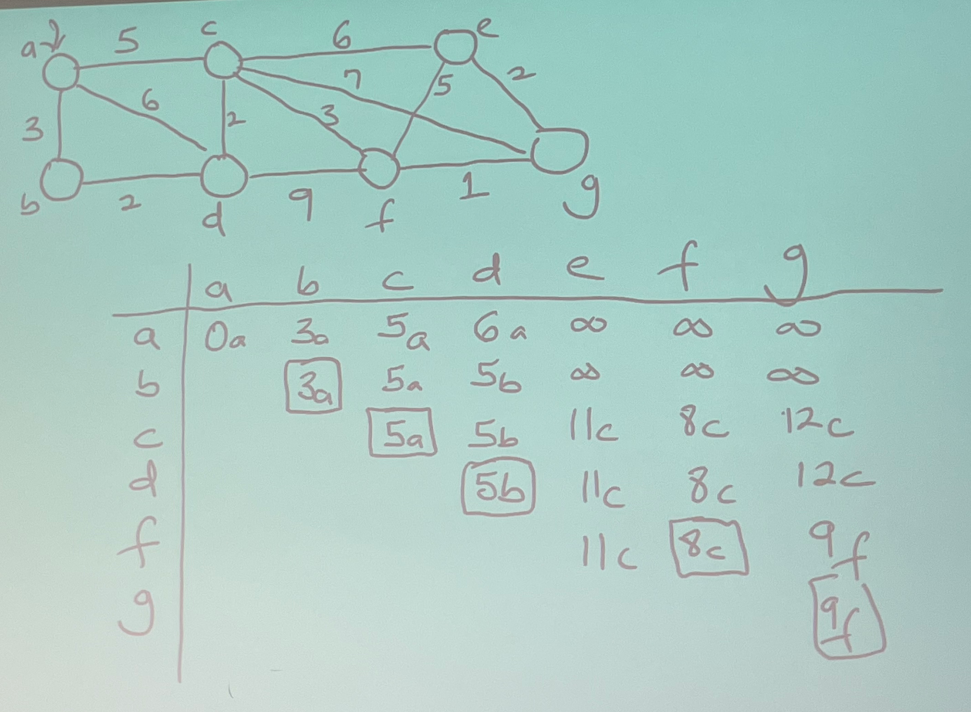 a 5 c 6 e
3 6 2 3 7 5 2
b 2 d 9 f 1 g
a b c d e f g
a 0a 3a 5a 6a ∞ ∞ ∞
b 3a 5a 5b ∞ ∞ ∞
c 5a 5b 11c 8c 12c
d 5b 11c 8c 12c
f 11c 8c 9f
g 9f